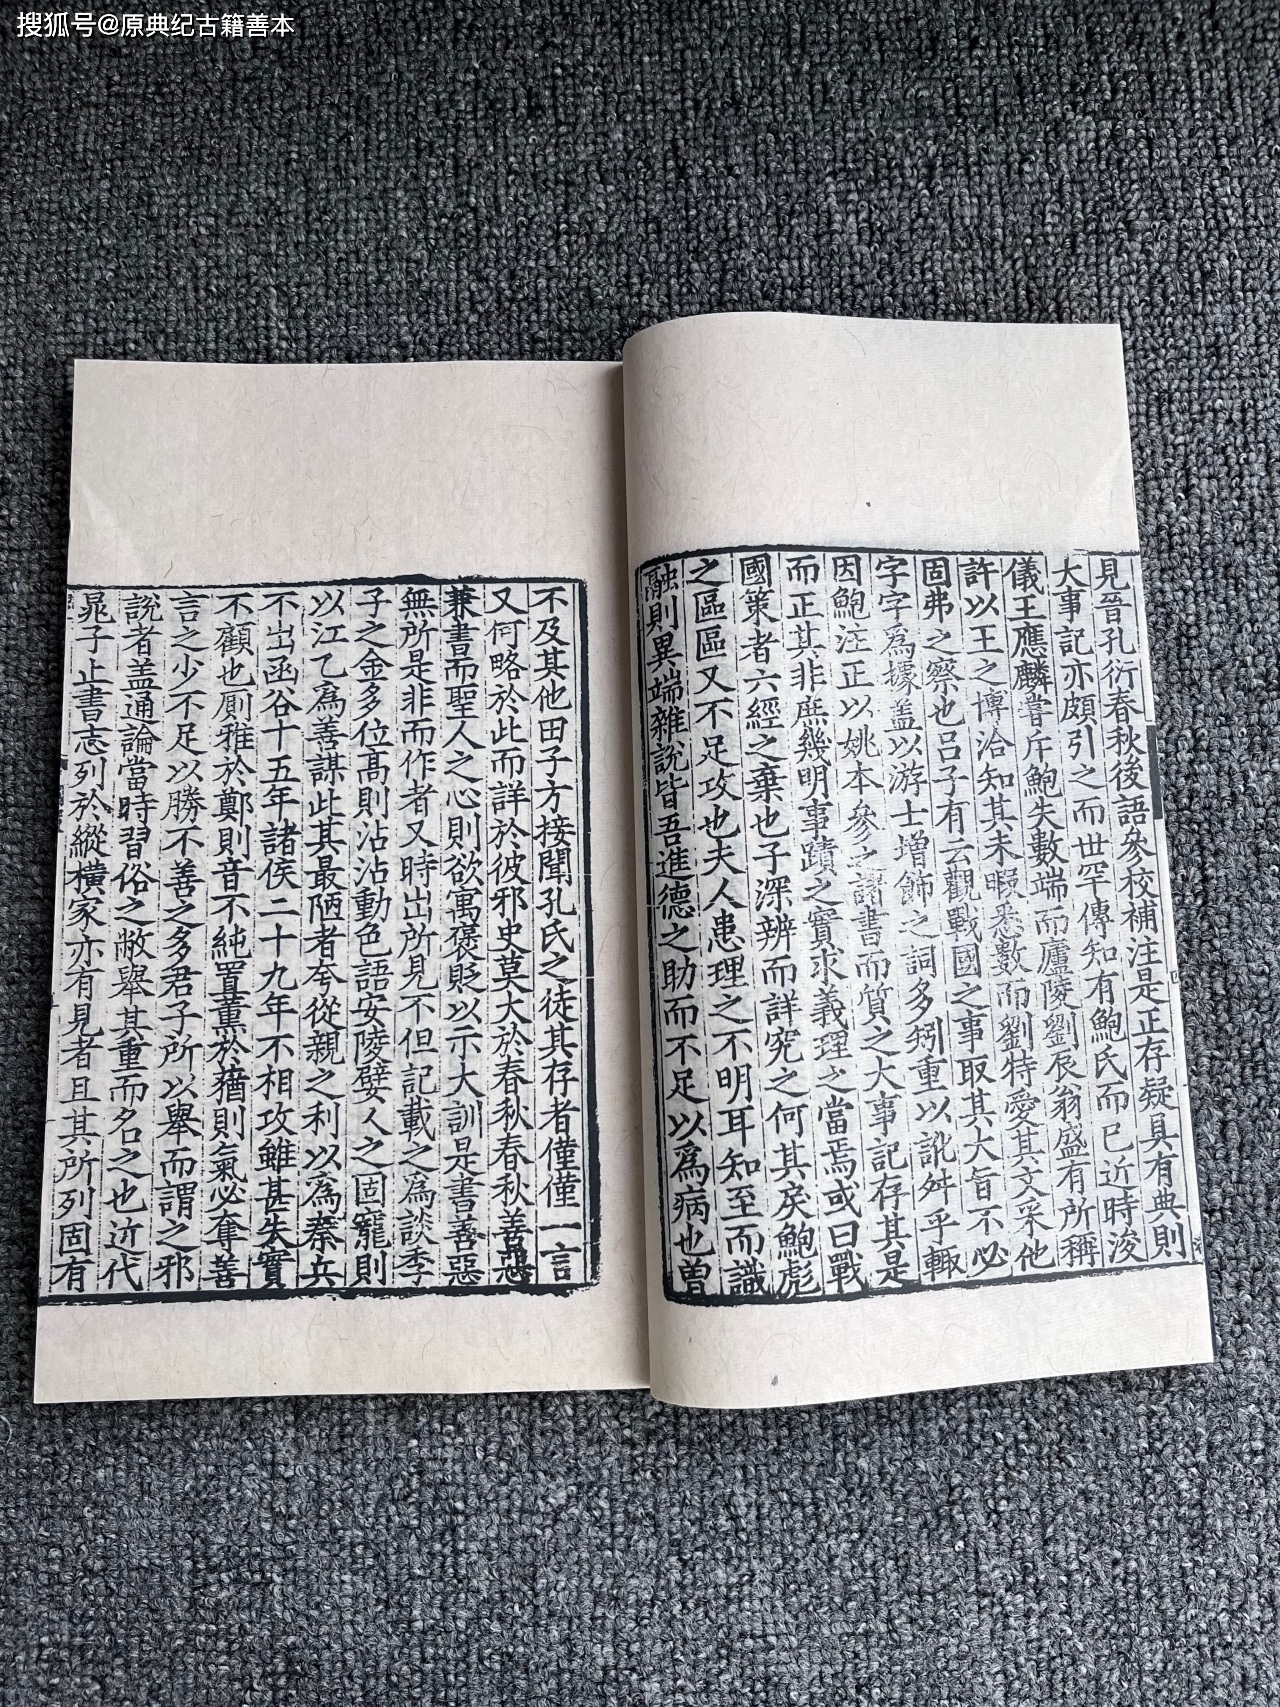 搜狐号@原典纪古籍善本
見晉孔衍春秋後語參校補注是正存疑具有典則
大事記亦頗引之而世罕傳知有鮑氏而已近時浚
儀王應麟嘗斥鮑失數端而廬陵劉辰翁盛有所稱
許以王之博洽知其未暇悉數而劉特愛其文采他
固弗之察也吕子有云觀戰國之事取其大旨不必
字字為據蓋以游士增飾之詞多矧重以訛舛乎輒
因鮑注正以姚本參之諸書而質之大事記存其是
而正其非庶幾明事蹟之實求義理之當焉或曰戰
國策者六經之棄也子深辨而詳究之何其戾鮑彪
之區區又不足攻也夫人患理之不明耳知至而識
融則異端雜說皆吾進德之助而不足以為病也曽
不及其他田子方接聞孔氏之徒其存者僅僅一言
又何略於此而詳於彼邪史莫大於春秋春秋善惡
兼書而聖人之心則欲寓褒貶以示大訓是書善惡
無所是非而作者又時出所見不但記載之為談季
子之金多位髙則沾沾動色語安陵嬖人之固寵則
以江乙為善謀此其最陋者夸從親之利以為秦兵
不出函谷十五年諸侯二十九年不相攻雖甚失實
不顧也厠雅於鄭則音不純置薰於蕕則氣必奪善
言之少不足以勝不善之多君子所以舉而謂之邪
說者盖通論當時習俗之敝舉其重而名之也近代
晁子止書志列於縱横家亦有見者且其所列固有